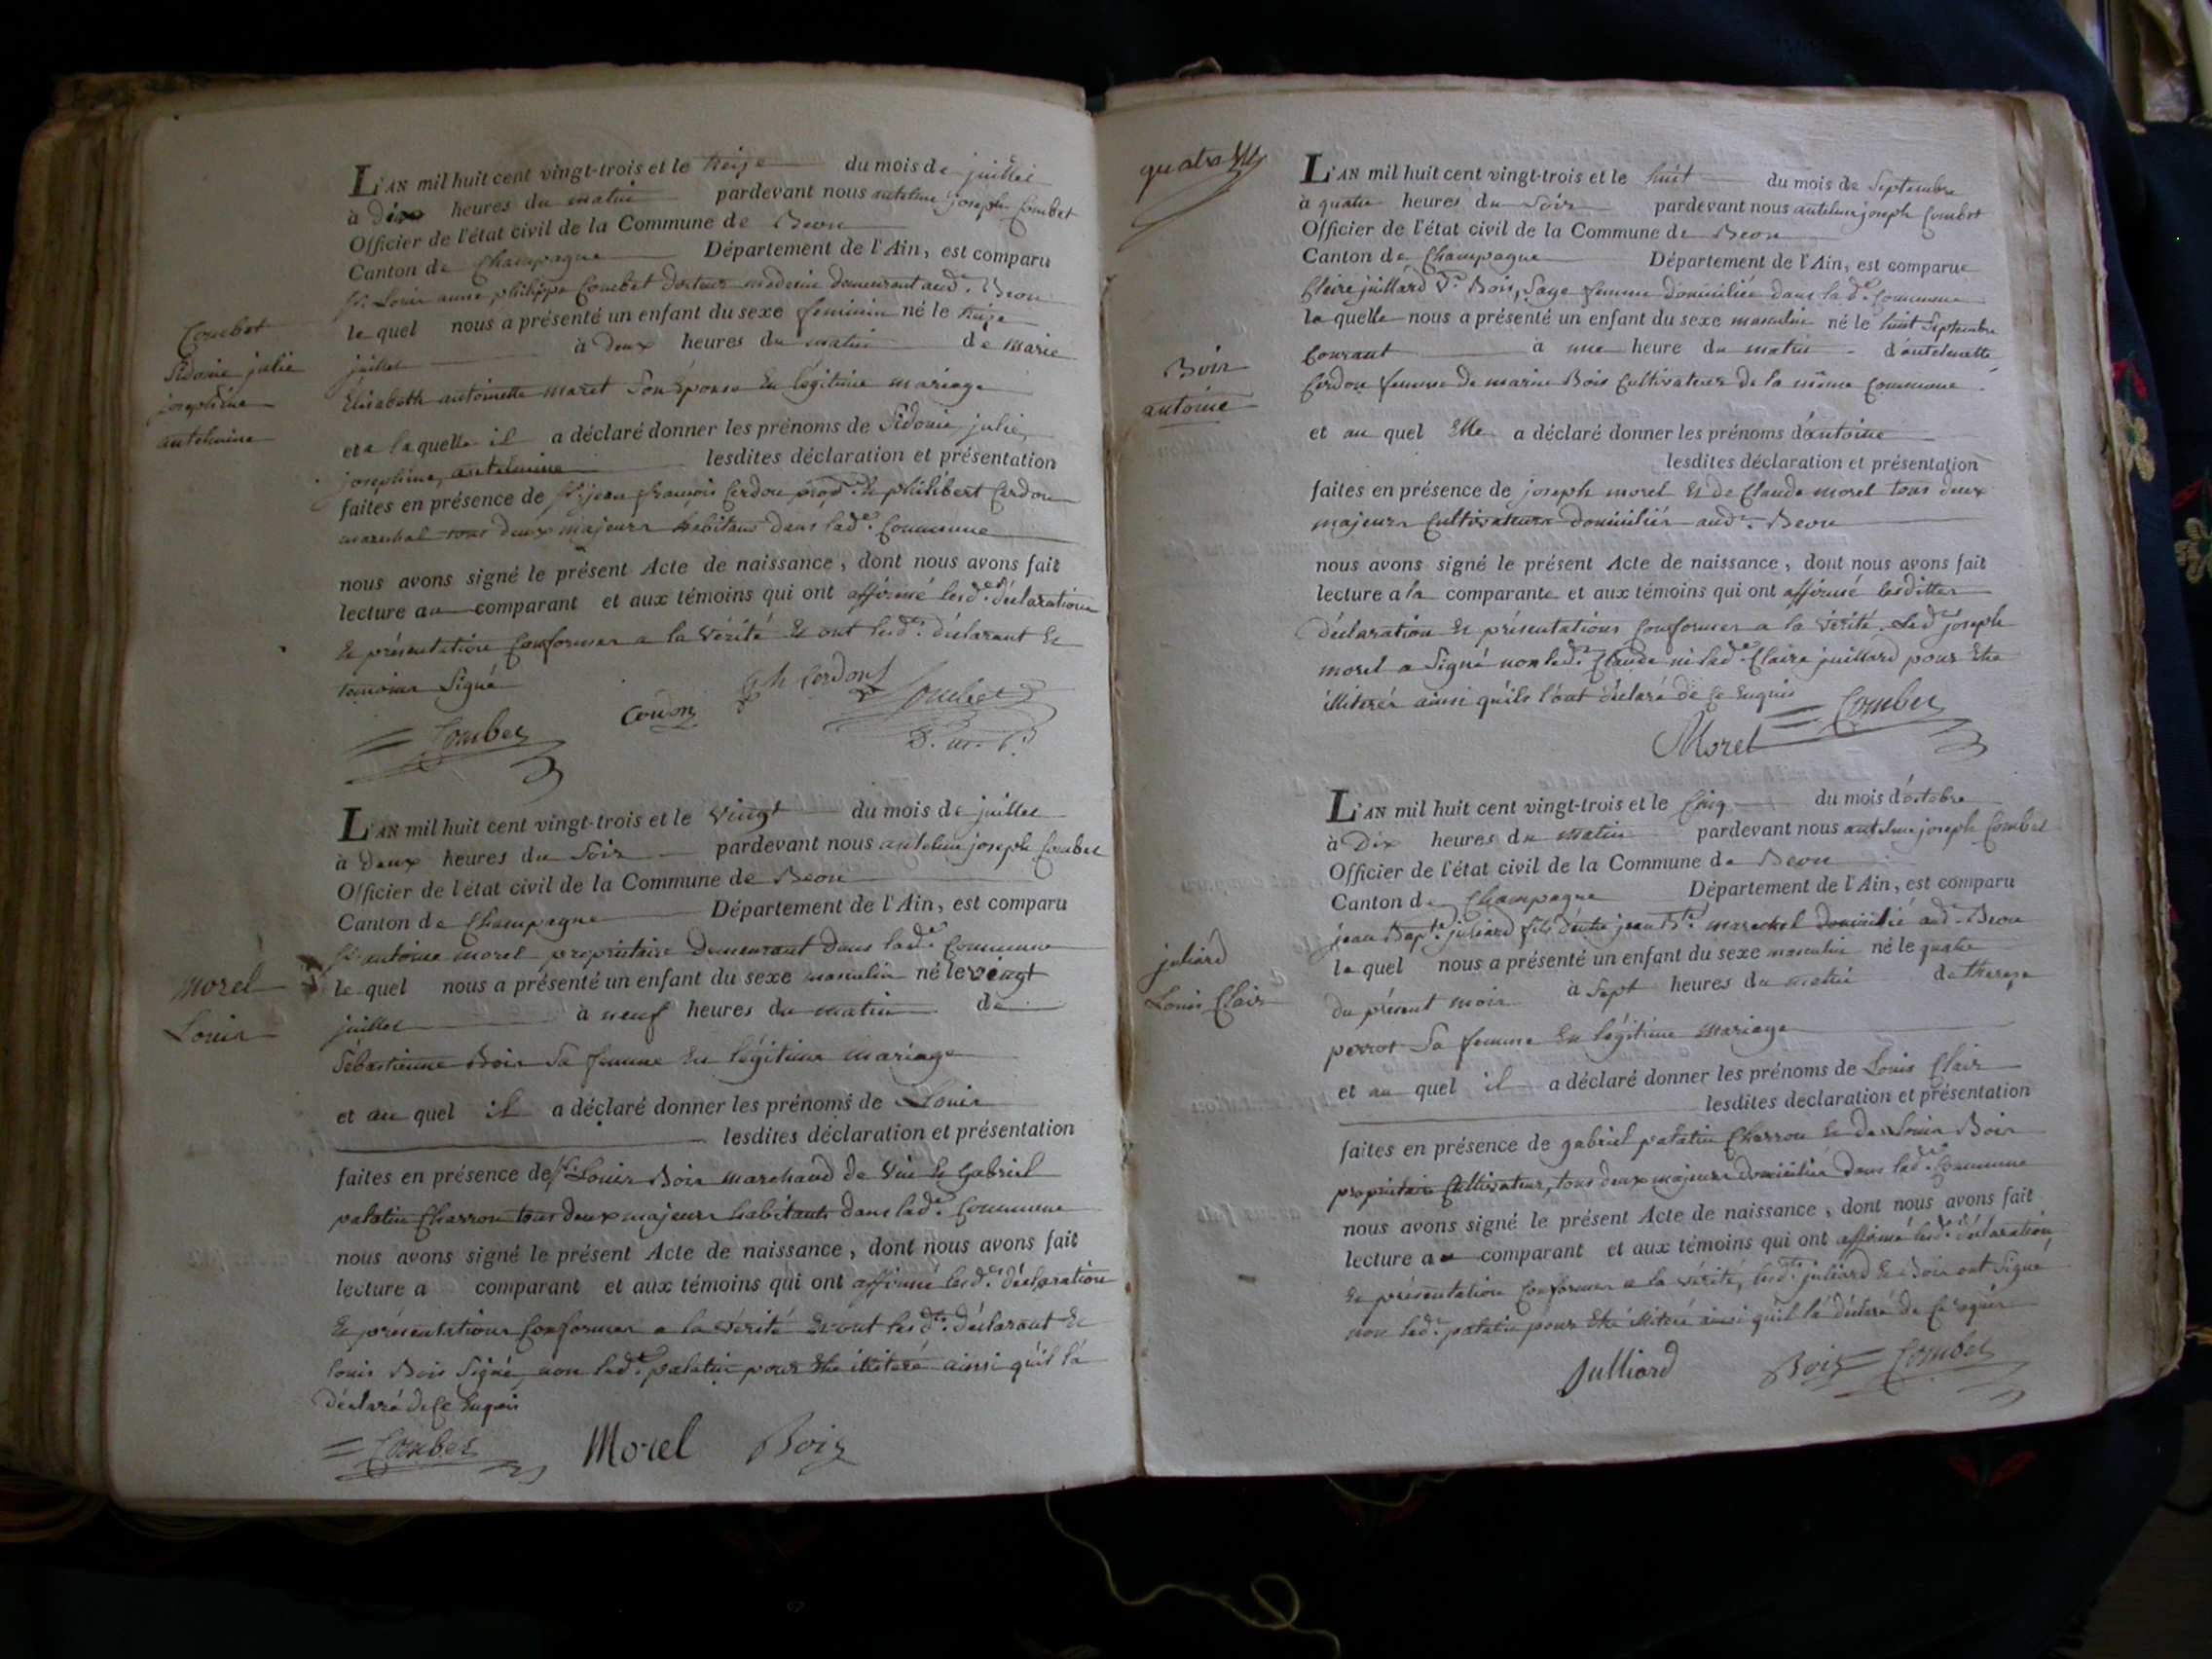 Combet
Sidonie julie
josephine
antelmine
L'AN mil huit cent vingt-trois et le treize du mois de juillet
à dix heures du matin pardevant nous antelme joseph Combet
Officier de l'état civil de la Commune de Beon
Canton de Champagne Département de l'Ain, est comparu
Sr. Louis anne philippe Combet docteur medecin demeurant aud. Beon
le quel nous a présenté un enfant du sexe feminin né le treize
juillet à deux heures du matin de marie
Elisabeth antoinette maret Son Epouse En légitime mariage
et a la quelle il a déclaré donner les prénoms de Sidonie, julie,
josephine, antelmine lesdites déclaration et présentation
faites en présence de Sr. jean françois Cerdon propre. Et philibert Cerdon
marechal tous deux majeurs habitans dans lade. Commune
nous avons signé le présent Acte de naissance, dont nous avons fait
lecture au comparant et aux témoins qui ont affirmé lesd. déclaration
Et présentation Conformes a la Vérité Et ont lesd. déclarant Et
temoins Signé
Combet Cerdon Ph Cerdon Combet
D. m. P.
Morel
Louis
L'AN mil huit cent vingt-trois et le vingt du mois de juillet
à deux heures du Soir pardevant nous antelme joseph Combet
Officier de l'état civil de la Commune de Beon
Canton de Champagne Département de l'Ain, est comparu
Sr. antoine morel propriétaire demeurant dans lade. Commune
le quel nous a présenté un enfant du sexe masculin né le vingt
juillet à neuf heures du matin de
Sébastienne Bois Sa femme En légitime mariage
et au quel il a déclaré donner les prénoms de Louis
lesdites déclaration et présentation
faites en présence de Sr. Louis Bois marchand de Vin Et Gabriel
palatin Charron tous deux majeurs habitants dans lade. Commune
nous avons signé le présent Acte de naissance, dont nous avons fait
lecture a comparant et aux témoins qui ont affirmé lesd. déclaration
Et présentations Conformes a la vérité Et ont lesd. déclarant Et
Louis Bois Signé, non led. palatin pour Etre illiteré ainsi qu'il l'a
déclaré de Ce Enquis
Combet Morel Bois
quatre
Bois
antoine
L'AN mil huit cent vingt-trois et le huit du mois de Septembre
à quatre heures du Soir pardevant nous antelme joseph Combet
Officier de l'état civil de la Commune de Beon
Canton de Champagne Département de l'Ain, est comparue
Claire juillard Ve. Bois, Sage femme domiciliée dans lade. Commune
la quelle nous a présenté un enfant du sexe masculin né le huit Septembre
Courant à une heure du matin d'antelmette
Cerdon femme de marin Bois Cultivateur de la même Commune
et au quel Elle a déclaré donner les prénoms d'antoine
lesdites déclaration et présentation
faites en présence de joseph morel Et de Claude morel tous deux
majeurs Cultivateurs domiciliés aud. Beon
nous avons signé le présent Acte de naissance, dont nous avons fait
lecture a la comparante et aux témoins qui ont affirmé lesdittes
déclaration Et présentations Conformes a la Vérité. Led. joseph
morel a Signé non led. Claude ni lade. Claire juillard pour Etre
illiterés ainsi qu'ils l'ont déclaré de Ce Enquis
Morel Combet
juliard
Louis Clair
L'AN mil huit cent vingt-trois et le Cinq du mois d'octobre
à Dix heures du matin pardevant nous antelme joseph Combet
Officier de l'état civil de la Commune de Beon
Canton de Champagne Département de l'Ain, est comparu
jean Bapte. juliard fils d'autre jean Bte. marechal domicilié aud. Beon
le quel nous a présenté un enfant du sexe masculin né le quatre
du présent mois à Sept heures du matin de therese
perrot Sa femme En légitime Mariage
et au quel il a déclaré donner les prénoms de Louis Clair
lesdites déclaration et présentation
faites en présence de gabriel palatin Charron Et de Louis Bois
propriétaire Cultivateur, tous deux majeurs domiciliés dans lade. Commune
nous avons signé le présent Acte de naissance, dont nous avons fait
lecture au comparant et aux témoins qui ont affirmé lesd. déclaration
Et présentation Conformes a la Vérité, lesd. juliard Et Bois ont Signé
non led. palatin pour Etre illiteré ainsi qu'il l'a déclaré de Ce requis
Julliard Bois Combet